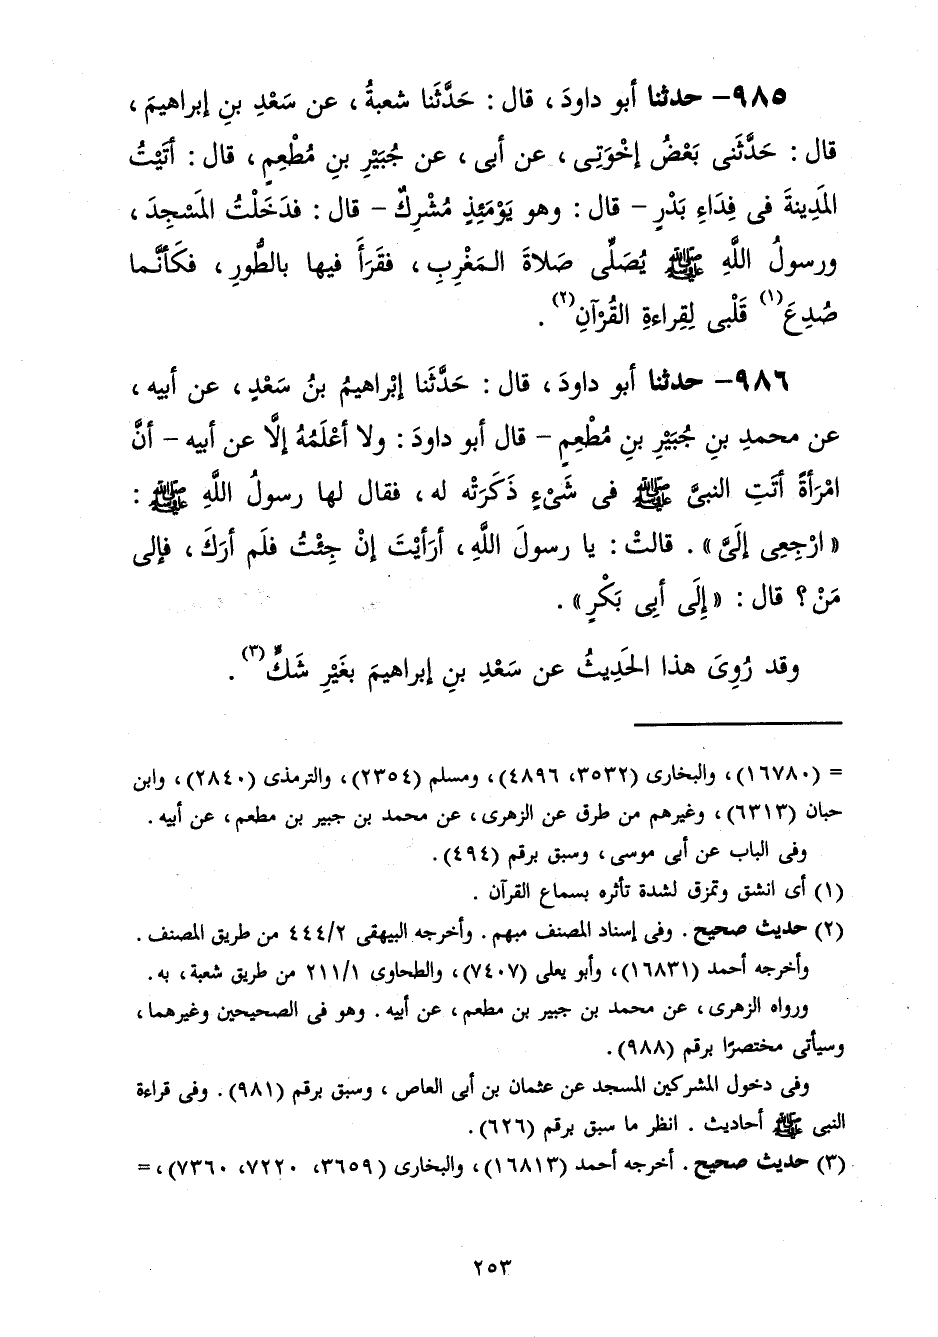 ٩٨٥- حدثنا أبو داودَ ، قال : حَدَّثَنا شعبةُ ، عن سَعْدِ بنِ إبراهيمَ ،
قال : حَدَّثَنى بَعْضُ إخْوَتِى ، عن أبى ، عن جُبَيْرِ بنِ مُطْعِمٍ ، قال : أتَيْتُ
المَدِينةَ فى فِدَاءِ بَدْرٍ - قال : وهو يَوْمَئِذٍ مُشْرِكٌ - قال : فدَخَلْتُ المَسْجِدَ ،
ورسولُ اللَّهِ ﷺ يُصَلِّى صَلاةَ المَغْرِبِ ، فقَرَأَ فيها بالطُّورِ ، فكَأنَّما
صُدِعَ(١) قَلْبى لِقِراءةِ القُرْآنِ(٢) .
٩٨٦- حدثنا أبو داودَ ، قال : حَدَّثَنا إبْراهيمُ بنُ سَعْدٍ ، عن أبيه ،
عن محمدِ بنِ جُبَيْرِ بنِ مُطْعِمٍ - قال أبو داودَ : ولا أعْلَمُهُ إلَّا عن أبيه - أنَّ
امْرَأةً أتَتِ النبىَّ ﷺ فى شَىْءٍ ذَكَرَتْه له ، فقال لها رسولُ اللَّهِ ﷺ :
« ارْجِعِى إلَىَّ » . قالتْ : يا رسولَ اللَّهِ ، أرَأيْتَ إنْ جِئْتُ فلَم أرَكَ ، فإلى
مَنْ ؟ قال : « إلَى أبِى بَكْرٍ » .
وقد رُوِىَ هذا الحَدِيثُ عن سَعْدِ بنِ إبراهيمَ بغَيْرِ شَكٍّ(٣) .
= (١٦٧٨٠) ، والبخارى (٣٥٣٢، ٤٨٩٦) ، ومسلم (٢٣٥٤) ، والترمذى (٢٨٤٠) ، وابن
حبان (٦٣١٣) ، وغيرهم من طرق عن الزهرى ، عن محمد بن جبير بن مطعم ، عن أبيه .
وفى الباب عن أبى موسى ، وسبق برقم (٤٩٤) .
(١) أى انشق وتمزق لشدة تأثره بسماع القرآن .
(٢) حديث صحيح . وفى إسناد المصنف مبهم . وأخرجه البيهقى ٤٤٤/٢ من طريق المصنف .
وأخرجه أحمد (١٦٨٣١) ، وأبو يعلى (٧٤٠٧) ، والطحاوى ٢١١/١ من طريق شعبة ، به .
ورواه الزهرى ، عن محمد بن جبير بن مطعم ، عن أبيه . وهو فى الصحيحين وغيرهما ،
وسيأتى مختصرًا برقم (٩٨٨) .
وفى دخول المشركين المسجد عن عثمان بن أبى العاص ، وسبق برقم (٩٨١) . وفى قراءة
النبى ﷺ أحاديث . انظر ما سبق برقم (٦٢٦) .
(٣) حديث صحيح . أخرجه أحمد (١٦٨١٣) ، والبخارى (٣٦٥٩، ٧٢٢٠، ٧٣٦٠) ، =
٢٥٣